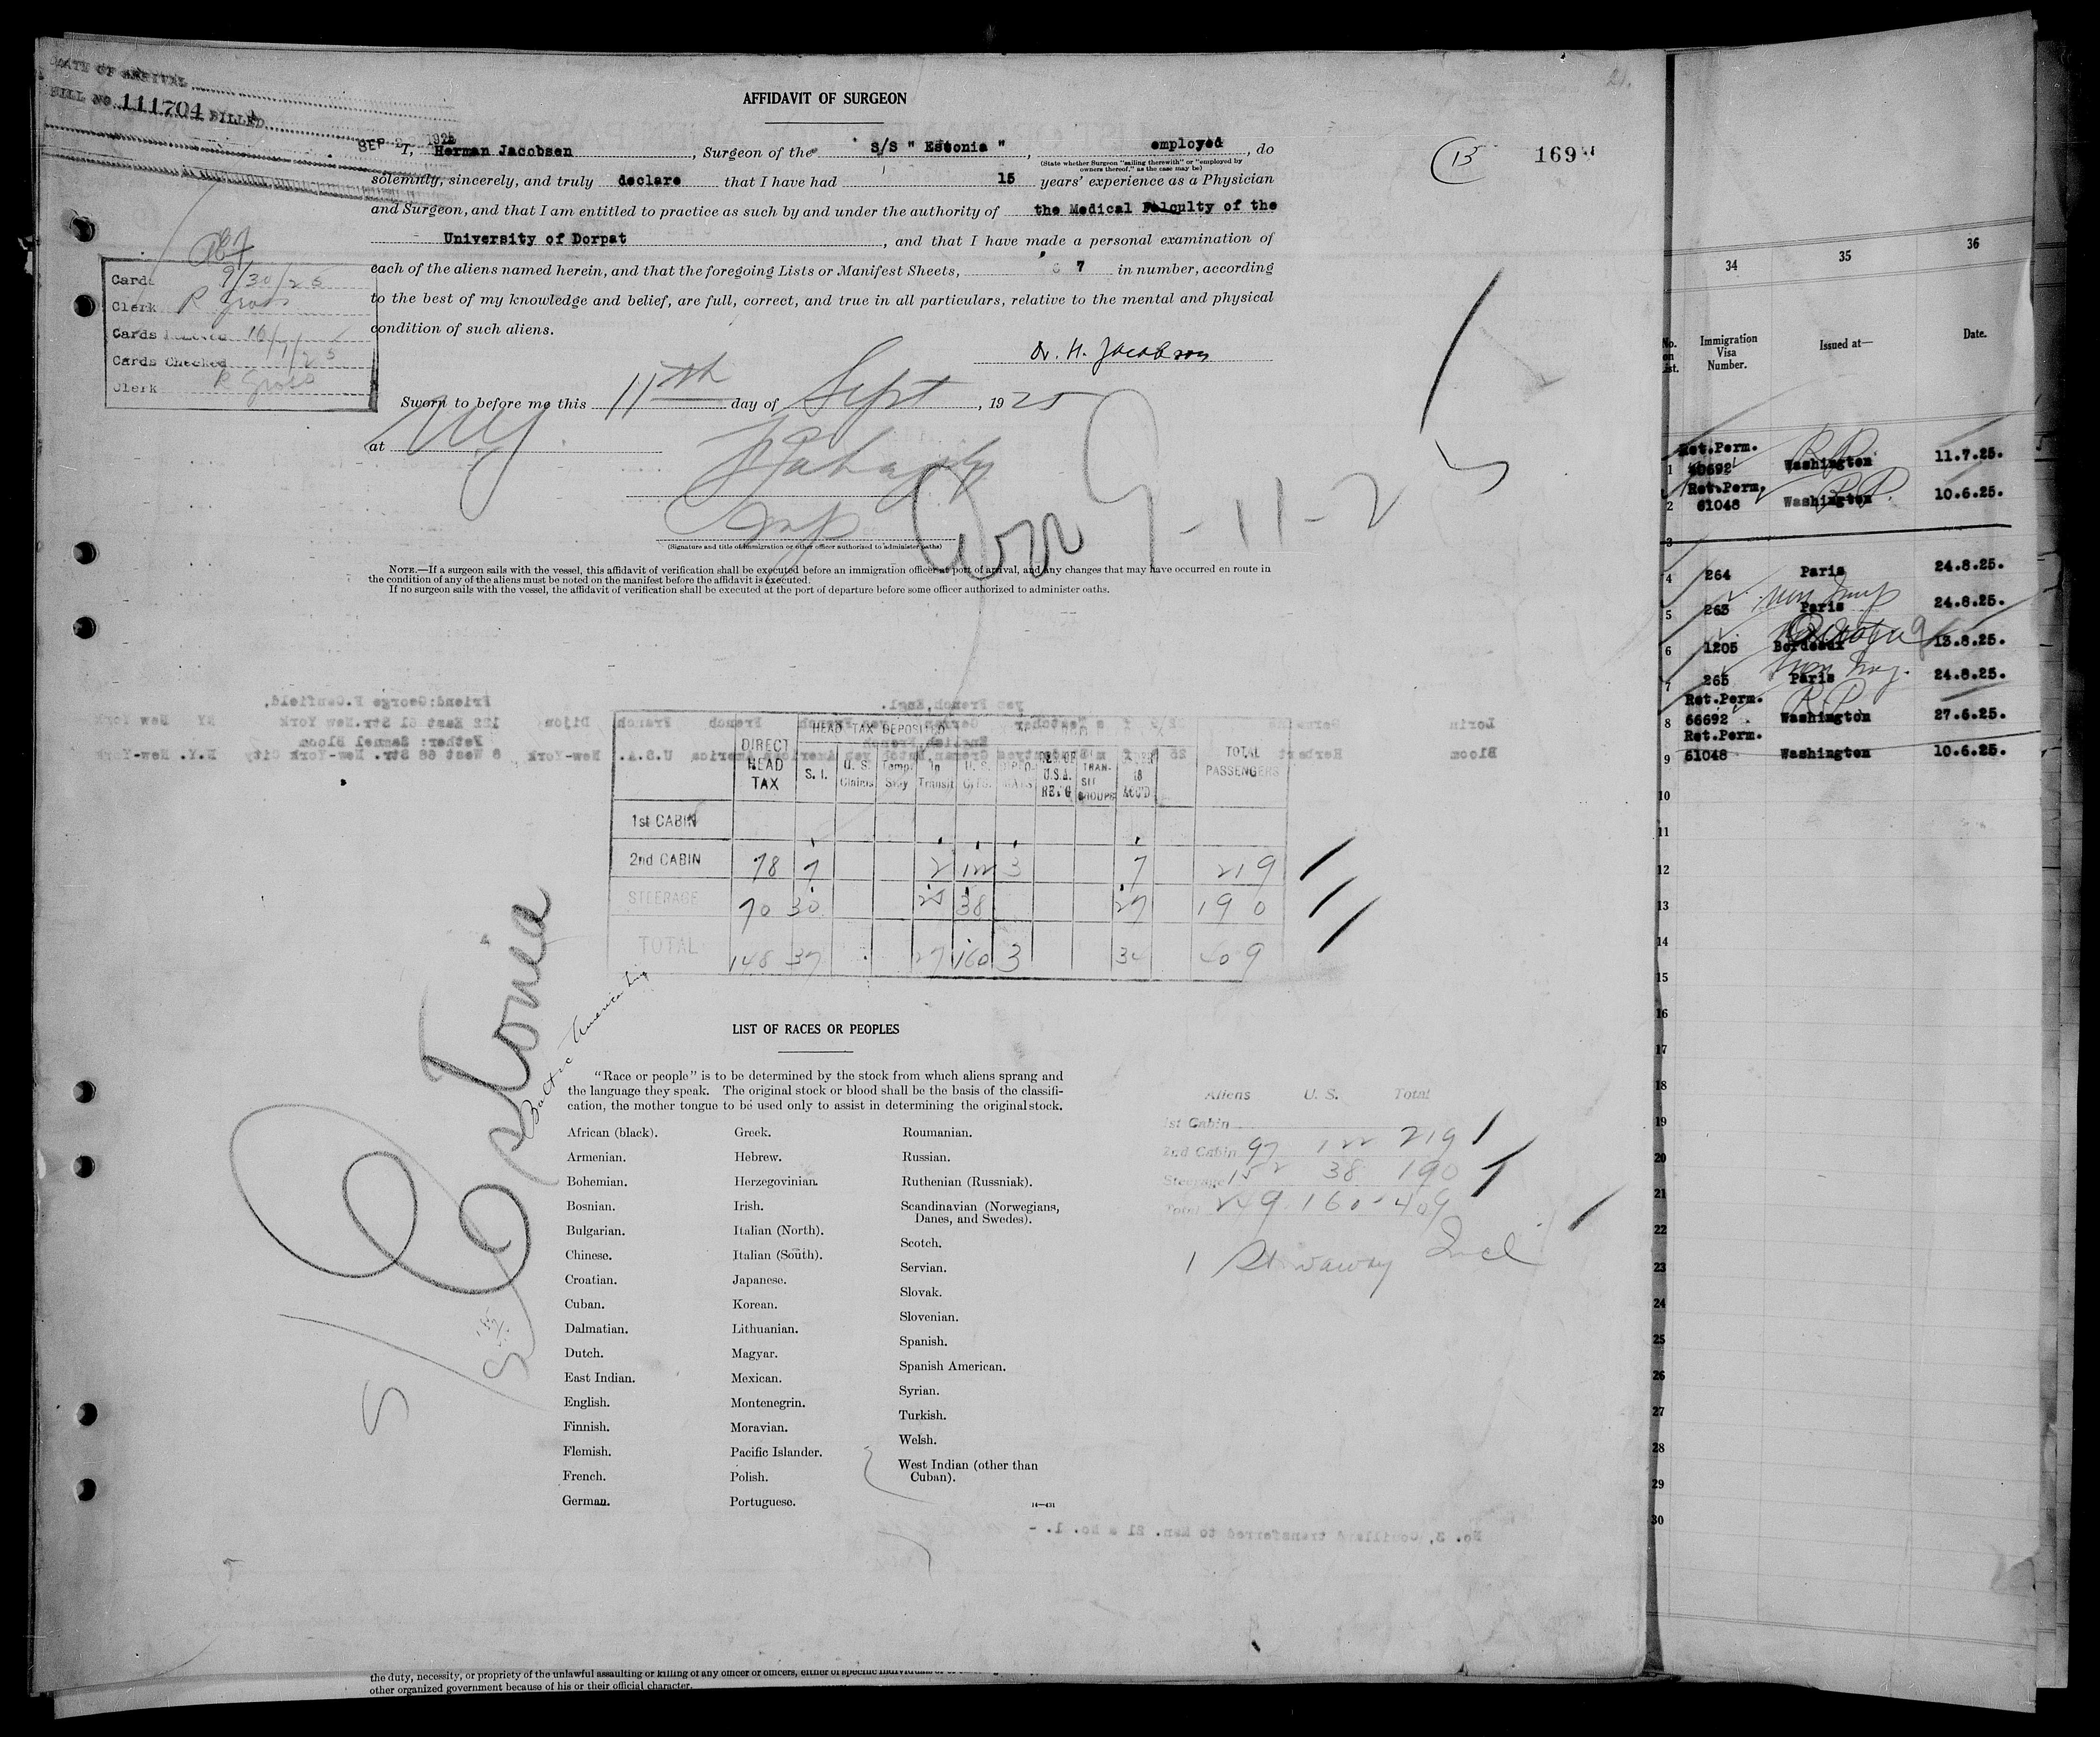 DATE OF ARRIVAL
BILL NO. 111704 BILLED
SEP 1925
AFFIDAVIT OF SURGEON
I, Herman Jacobsen, Surgeon of the S/S " Estonia ", employed, do
(State whether Surgeon "sailing therewith" or "employed by
owners thereof," as the case may be)
solemnly, sincerely, and truly declare that I have had 15 years' experience as a Physician
and Surgeon, and that I am entitled to practice as such by and under the authority of the Medical Falculty of the
University of Dorpat, and that I have made a personal examination of
each of the aliens named herein, and that the foregoing Lists or Manifest Sheets, 7 in number, according
to the best of my knowledge and belief, are full, correct, and true in all particulars, relative to the mental and physical
condition of such aliens.
Dr. H. Jacobson
Sworn to before me this 11th day of Sept, 1925
at NY
Insp
(Signature and title of immigration or other officer authorized to administer oaths)
9-11-25
13
169
21.
Cards 9/30/25
Clerk R Gross
Cards 10/1/25
Cards Checked
Clerk R Gross
NOTE.—If a surgeon sails with the vessel, this affidavit of verification shall be executed before an immigration officer at port of arrival, and any changes that may have occurred en route in
the condition of any of the aliens must be noted on the manifest before the affidavit is executed.
If no surgeon sails with the vessel, the affidavit of verification shall be executed at the port of departure before some officer authorized to administer oaths.
HEAD TAX DEPOSITED
DIRECT HEAD TAX S. I. U. S. Claims Temp. Stay In Transit U. S. TRANSIT GROUPS TOTAL PASSENGERS
1st CABIN
2nd CABIN 78 7 2 122 3 7 219
STEERAGE 70 30 25 38 27 190
TOTAL 148 37 27 160 3 34 409
Estonia
Baltic America Line
LIST OF RACES OR PEOPLES
"Race or people" is to be determined by the stock from which aliens sprang and
the language they speak. The original stock or blood shall be the basis of the classifi-
cation, the mother tongue to be used only to assist in determining the original stock.
African (black).
Armenian.
Bohemian.
Bosnian.
Bulgarian.
Chinese.
Croatian.
Cuban.
Dalmatian.
Dutch.
East Indian.
English.
Finnish.
Flemish.
French.
German.
Greek.
Hebrew.
Herzegovinian.
Irish.
Italian (North).
Italian (South).
Japanese.
Korean.
Lithuanian.
Magyar.
Mexican.
Montenegrin.
Moravian.
Pacific Islander.
Polish.
Portuguese.
Roumanian.
Russian.
Ruthenian (Russniak).
Scandinavian (Norwegians,
Danes, and Swedes).
Scotch.
Servian.
Slovak.
Slovenian.
Spanish.
Spanish American.
Syrian.
Turkish.
Welsh.
West Indian (other than
Cuban).
14—431
Aliens U. S. Total
1st Cabin
2nd Cabin 97 122 219
Steerage 152 38 190
Total 249 160 409
1 Stowaway Incl
No. 3, transferred to Man. 21 a No. 1. -
the duty, necessity, or propriety of the unlawful assaulting or killing of any officer or officers, either of specific
other organized government because of his or their official character.
34 35 36
No. on List. Immigration Visa Number. Issued at— Date.
1 Ret.Perm. Washington 11.7.25.
2 Ret.Perm. 61048 Washington 10.6.25.
3
4 264 Paris 24.8.25.
5 263 Paris 24.8.25.
6 1205 Bordeaux 13.8.25.
7 265 Paris 24.8.25.
8 Ret.Perm. 66692 Washington 27.6.25.
9 Ret.Perm. 61048 Washington 10.6.25.
10
11
12
13
14
15
16
17
18
19
20
21
22
23
24
25
26
27
28
29
30